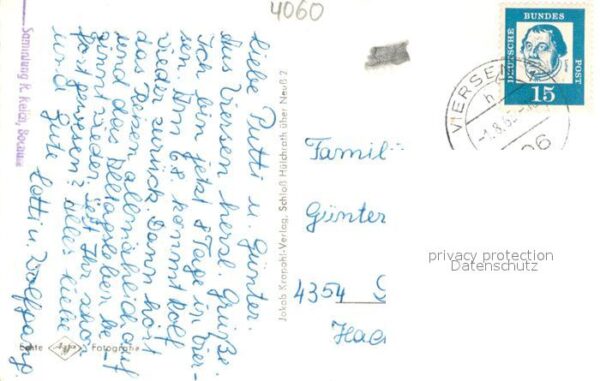 4060
Sammlung K. Reiser, Bochum
Liebe Putti u. Günter.
Aus Viersen herzl. Grüße.
Ich bin jetzt 8 Tage in Vier-
sen. Am 6.8 kommt Rolf
wieder zurück. Dann hört
das Reisen allmählich auf
und das Alltagsleben be-
ginnt wieder. Seit Ihr schon
fort gewesen? Alles liebe
und Gute
Lotti u. Wolfgang.
Echte Agfa Fotografie
Jakob Krapohl-Verlag, Schloß Hülchrath über Neuß 2
DEUTSCHE BUNDES POST
15
VIERSEN
h
-1.8.6
Famil
Günter
4354
privacy protection
Datenschutz